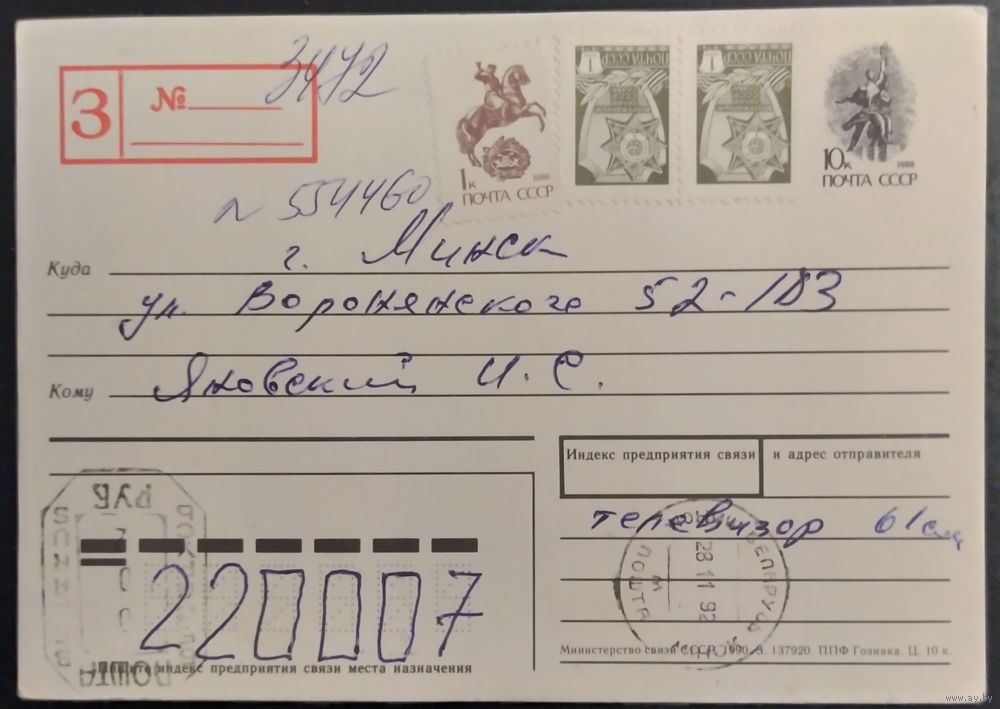 3472
З №
n 554460
1к 1988
ПОЧТА СССР
1 ПОЧТА СССР
1 ПОЧТА СССР
10к 1988
ПОЧТА СССР
Куда г. Минск
ул. Воронянского 52-183
Кому Яновский И. С.
Индекс предприятия связи и адрес отправителя
телевизор 61см
РУБ
ПОШТА
БЕЛАРУСЬ
28 11 92
ПОШТА
220007
Пишите индекс предприятия связи места назначения
Министерство связи СССР, 1990. З. 137920. ППФ Гознака. Ц. 10 к.
www.ay.by